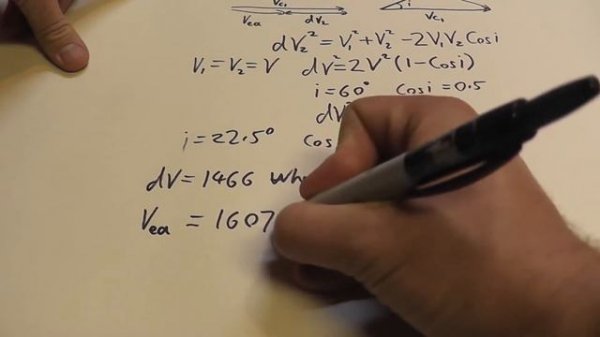 Vc₁
Vea dV₂ i Vc₁
dV₂² = V₁² + V₂² - 2V₁V₂ Cosi
V₁ = V₂ = V dV² = 2V² (1 - Cosi)
i = 60° Cosi = 0.5
dV²
i = 22.5° Cos
dV = 1466 Wh
Vea = 1607